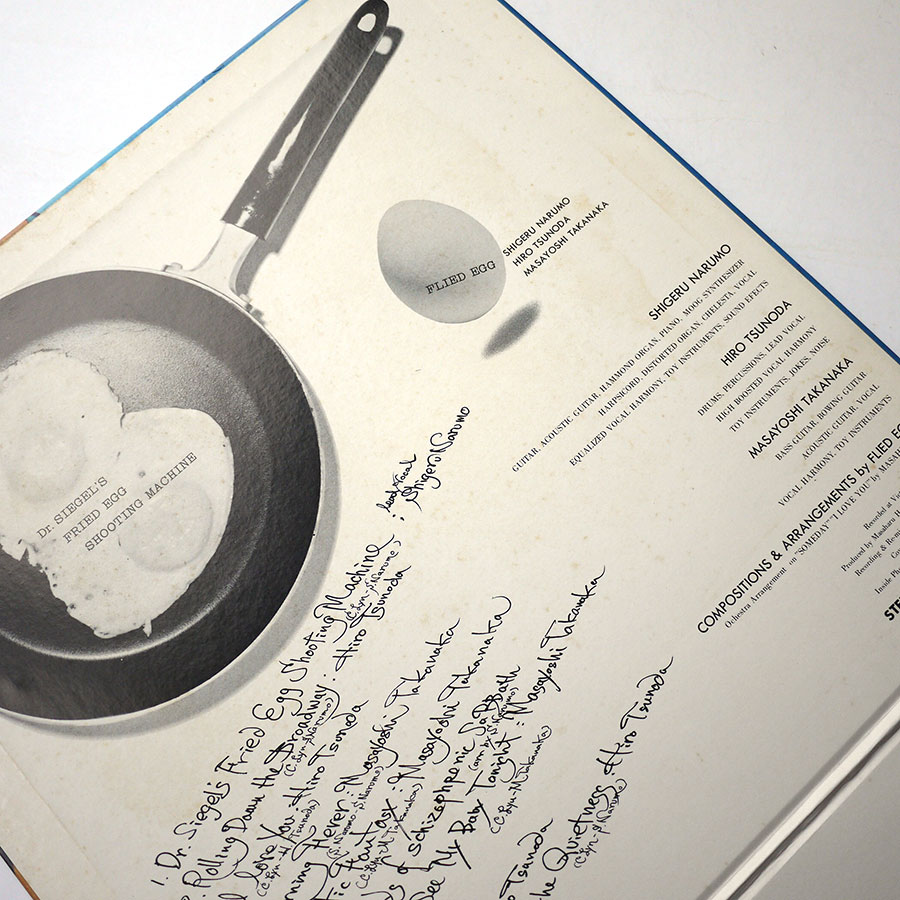 FLIED EGG
SHIGERU NARUMO
HIRO TSUNODA
MASAYOSHI TAKANAKA
Dr. SIEGEL'S
FRIED EGG
SHOOTING MACHINE
SHIGERU NARUMO
GUITAR, ACOUSTIC GUITAR, HAMMOND ORGAN, PIANO, MOOG SYNTHESIZER
HARPSICORD, DISTORTED ORGAN, CHELESTA, VOCAL
EQUALIZED VOCAL HARMONY, TOY INSTRUMENTS, SOUND EFECTS
HIRO TSUNODA
DRUMS, PERCUSSIONS, LEAD VOCAL
HIGH BOOSTED VOCAL HARMONY
TOY INSTRUMENTS, JOKES, NOISE
MASAYOSHI TAKANAKA
BASS GUITAR, BOWING GUITAR
ACOUSTIC GUITAR, VOCAL
VOCAL HARMONY, TOY INSTRUMENTS
COMPOSITIONS & ARRANGEMENTS by FLIED
Ochestra Arrangement on "SOMEDAY" "I LOVE YOU" by
Recorded at
Produced by Masaharu
Recording &
Inside
lead vocal
1. Dr. Siegel's Fried Egg Shooting Machine : Shigeru Narumo
(C. Lyn-S. Narumo)
Rolling Down the Broadway : Hiro Tsunoda
(C. Lyn-S. Narumo)
Love You : Hiro Tsunoda
(C. Lyn-H. Tsunoda)
ning Fever : Masayoshi Takanaka
(S. Narumo-S. Narumo)
: Masayoshi Takanaka
(C. Lyn-M. Takanaka)
Schizophrenic Sabbath
(arr by S. Narumo)
See My Baby Tonight : Masayoshi Takanaka
(C. Lyn-M. Takanaka)
Tsunoda
the Quietness : Hiro Tsunoda
(C. Lyn-S. Narumo)